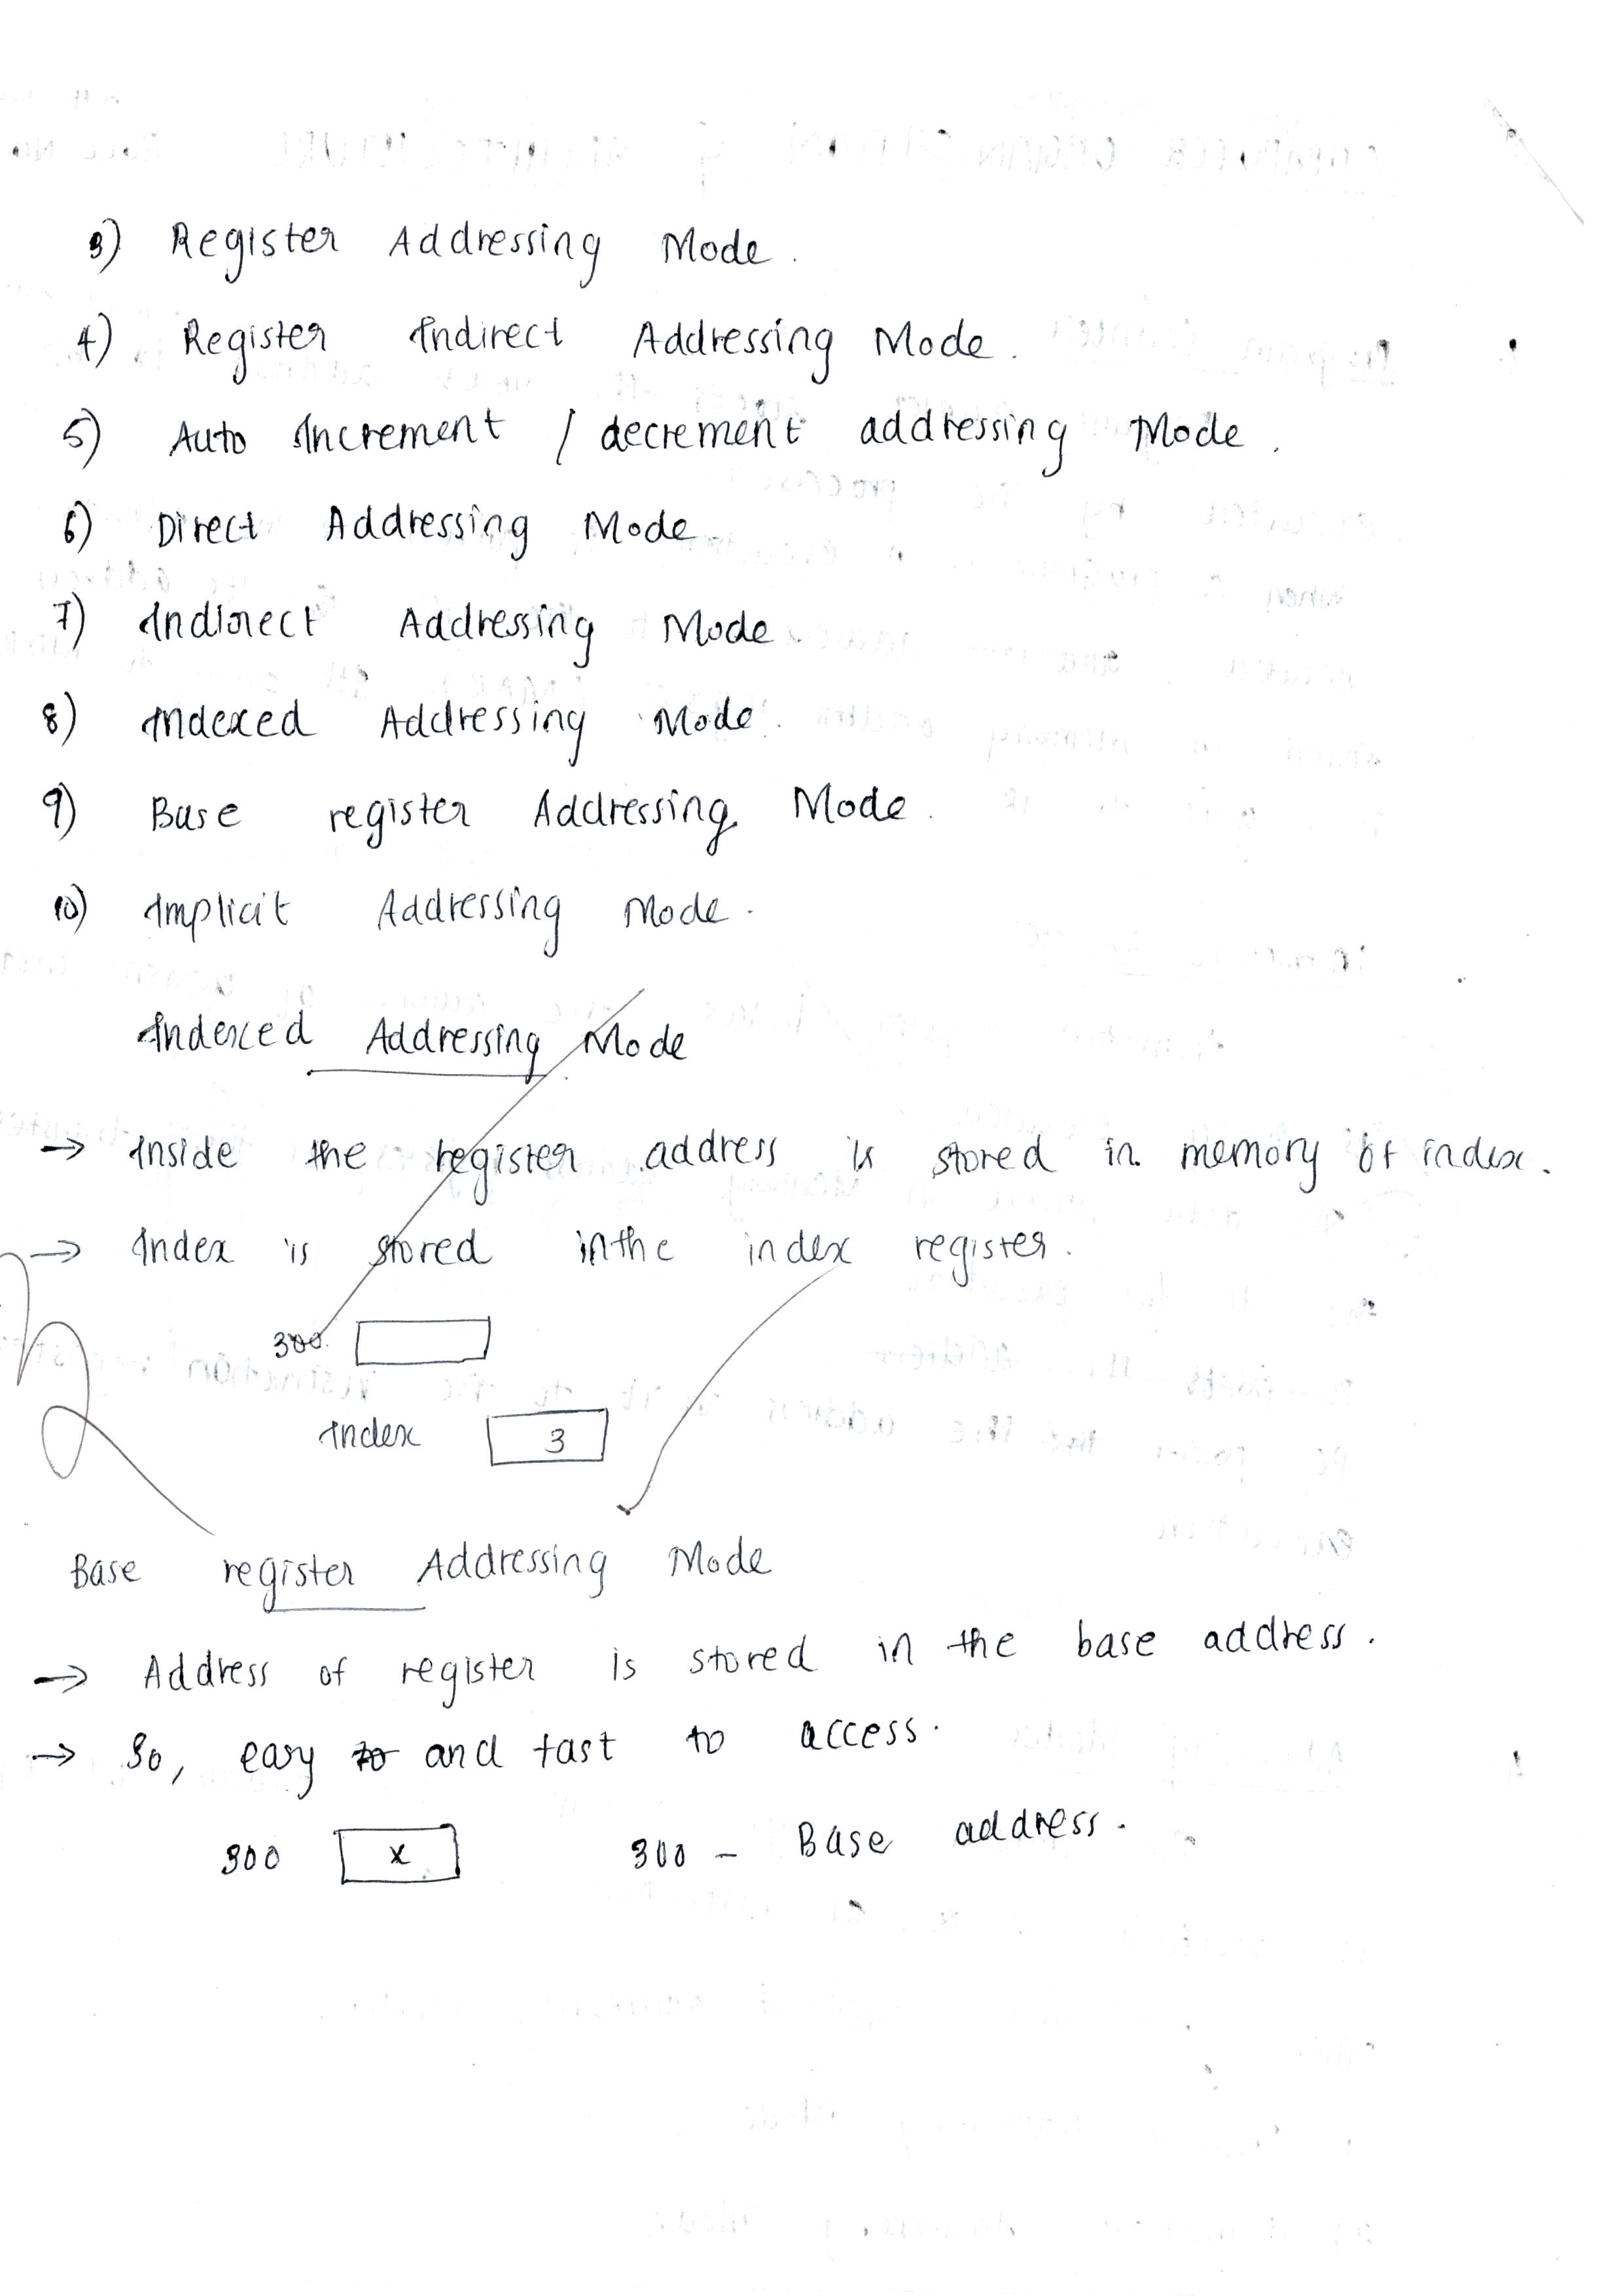 3) Register Addressing Mode.
4) Register Indirect Addressing Mode.
5) Auto Increment / decrement addressing Mode.
6) Direct Addressing Mode.
7) Indirect Addressing Mode.
8) Indexed Addressing Mode.
9) Base register Addressing Mode.
10) Implicit Addressing Mode.
Indexed Addressing Mode
→ Inside the register address is stored in memory of index.
→ Index is stored in the index register.
300
Index 3
Base register Addressing Mode
→ Address of register is stored in the base address.
→ So, easy to and fast to access.
300 x 300 - Base address.